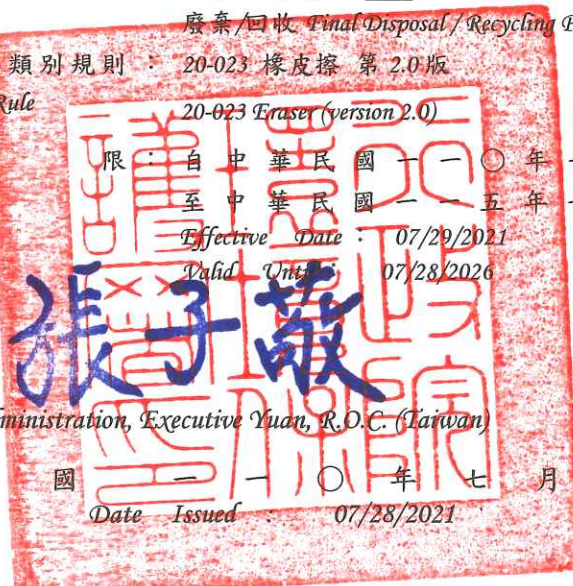 廢棄/回收 Final Disposal / Recycling
類別規則 : 20-023 橡皮擦 第 2.0 版
Rule 20-023 Eraser (version 2.0)
限 : 自中華民國一一○年
至中華民國一一五年
Effective Date : 07/29/2021
Valid Until : 07/28/2026
張子敬
ministration, Executive Yuan, R.O.C. (Taiwan)
國 一一○年七月
Date Issued : 07/28/2021
行政院環境保護署印